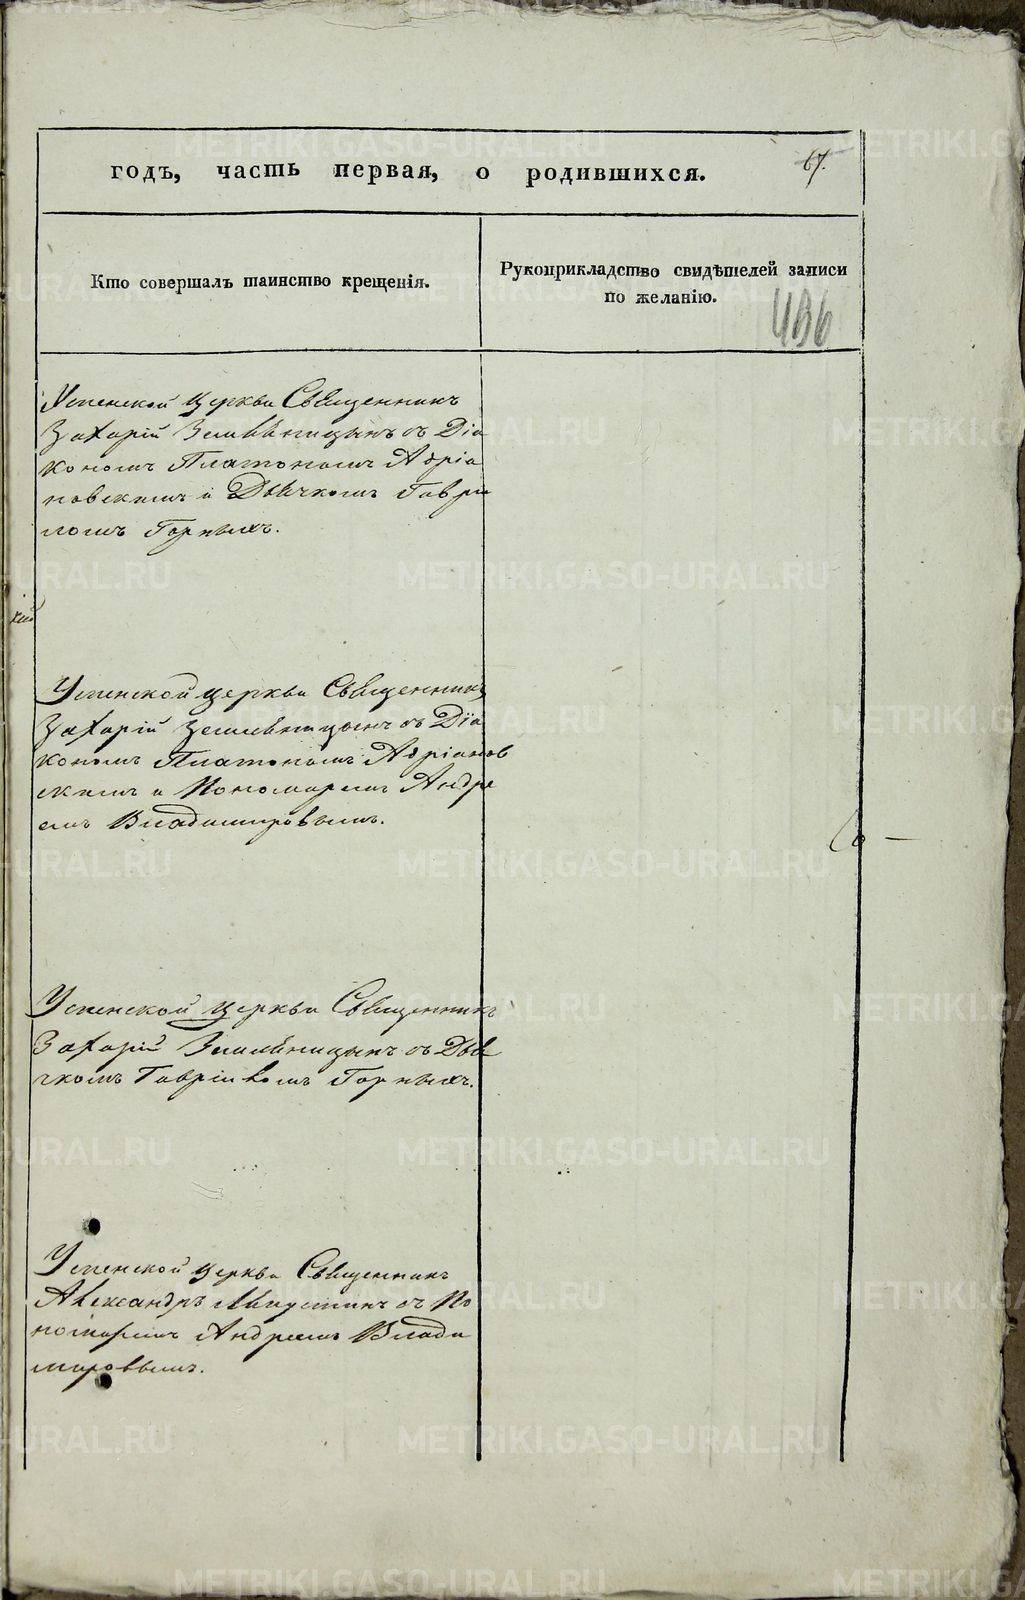 годъ, часть первая, о родившихся.
67.
Кто совершалъ таинство крещенія.
Рукоприкладство свидѣтелей записи
по желанію.
436
Успенской церкви Священникъ
Захарій Землѣницынъ съ Діа
кономъ Платономъ Адріа
новскимъ и Дьячкомъ Гаврі
ломъ Горныхъ.
кій
Успенской церкви Священникъ
Захарій Землѣницынъ съ Діа
кономъ Платономъ Адріанов
скимъ и Пономаремъ Андре
емъ Владимировымъ.
Успенской церкви Священникъ
Захарій Землѣницынъ съ Дья
чкомъ Гавріиломъ Горныхъ.
Успенской церкви Священникъ
Александръ съ По
номаремъ Андреемъ Влади
мировымъ.
METRIKI.GASO-URAL.RU